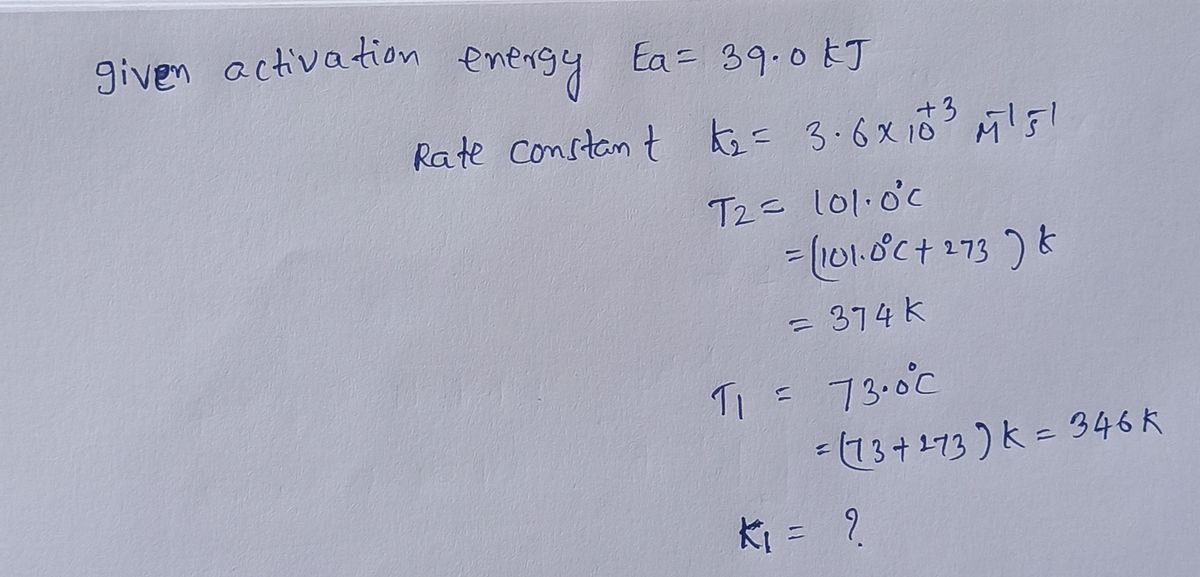 given activation energy Ea = 39.0 kJ
Rate constant k₂ = 3.6 x 10⁺³ M⁻¹ s⁻¹
T₂ = 101.0°c
= (101.0°C + 273) k
= 374 K
T₁ = 73.0°C
= (73 + 273) K = 346 K
K₁ = ?